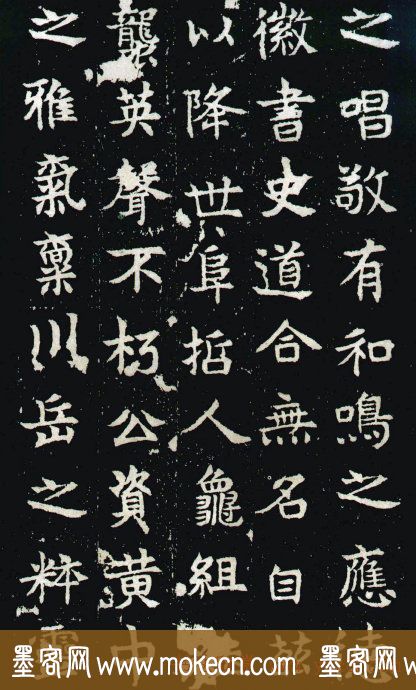 之唱敬有和鳴之應德
徽書史道合無名自兹
以降世阜哲人龜組
襲英聲不朽公資黄中
之雅氣稟川岳之粹靈
墨客网 www.mokecn.com 墨客网 w